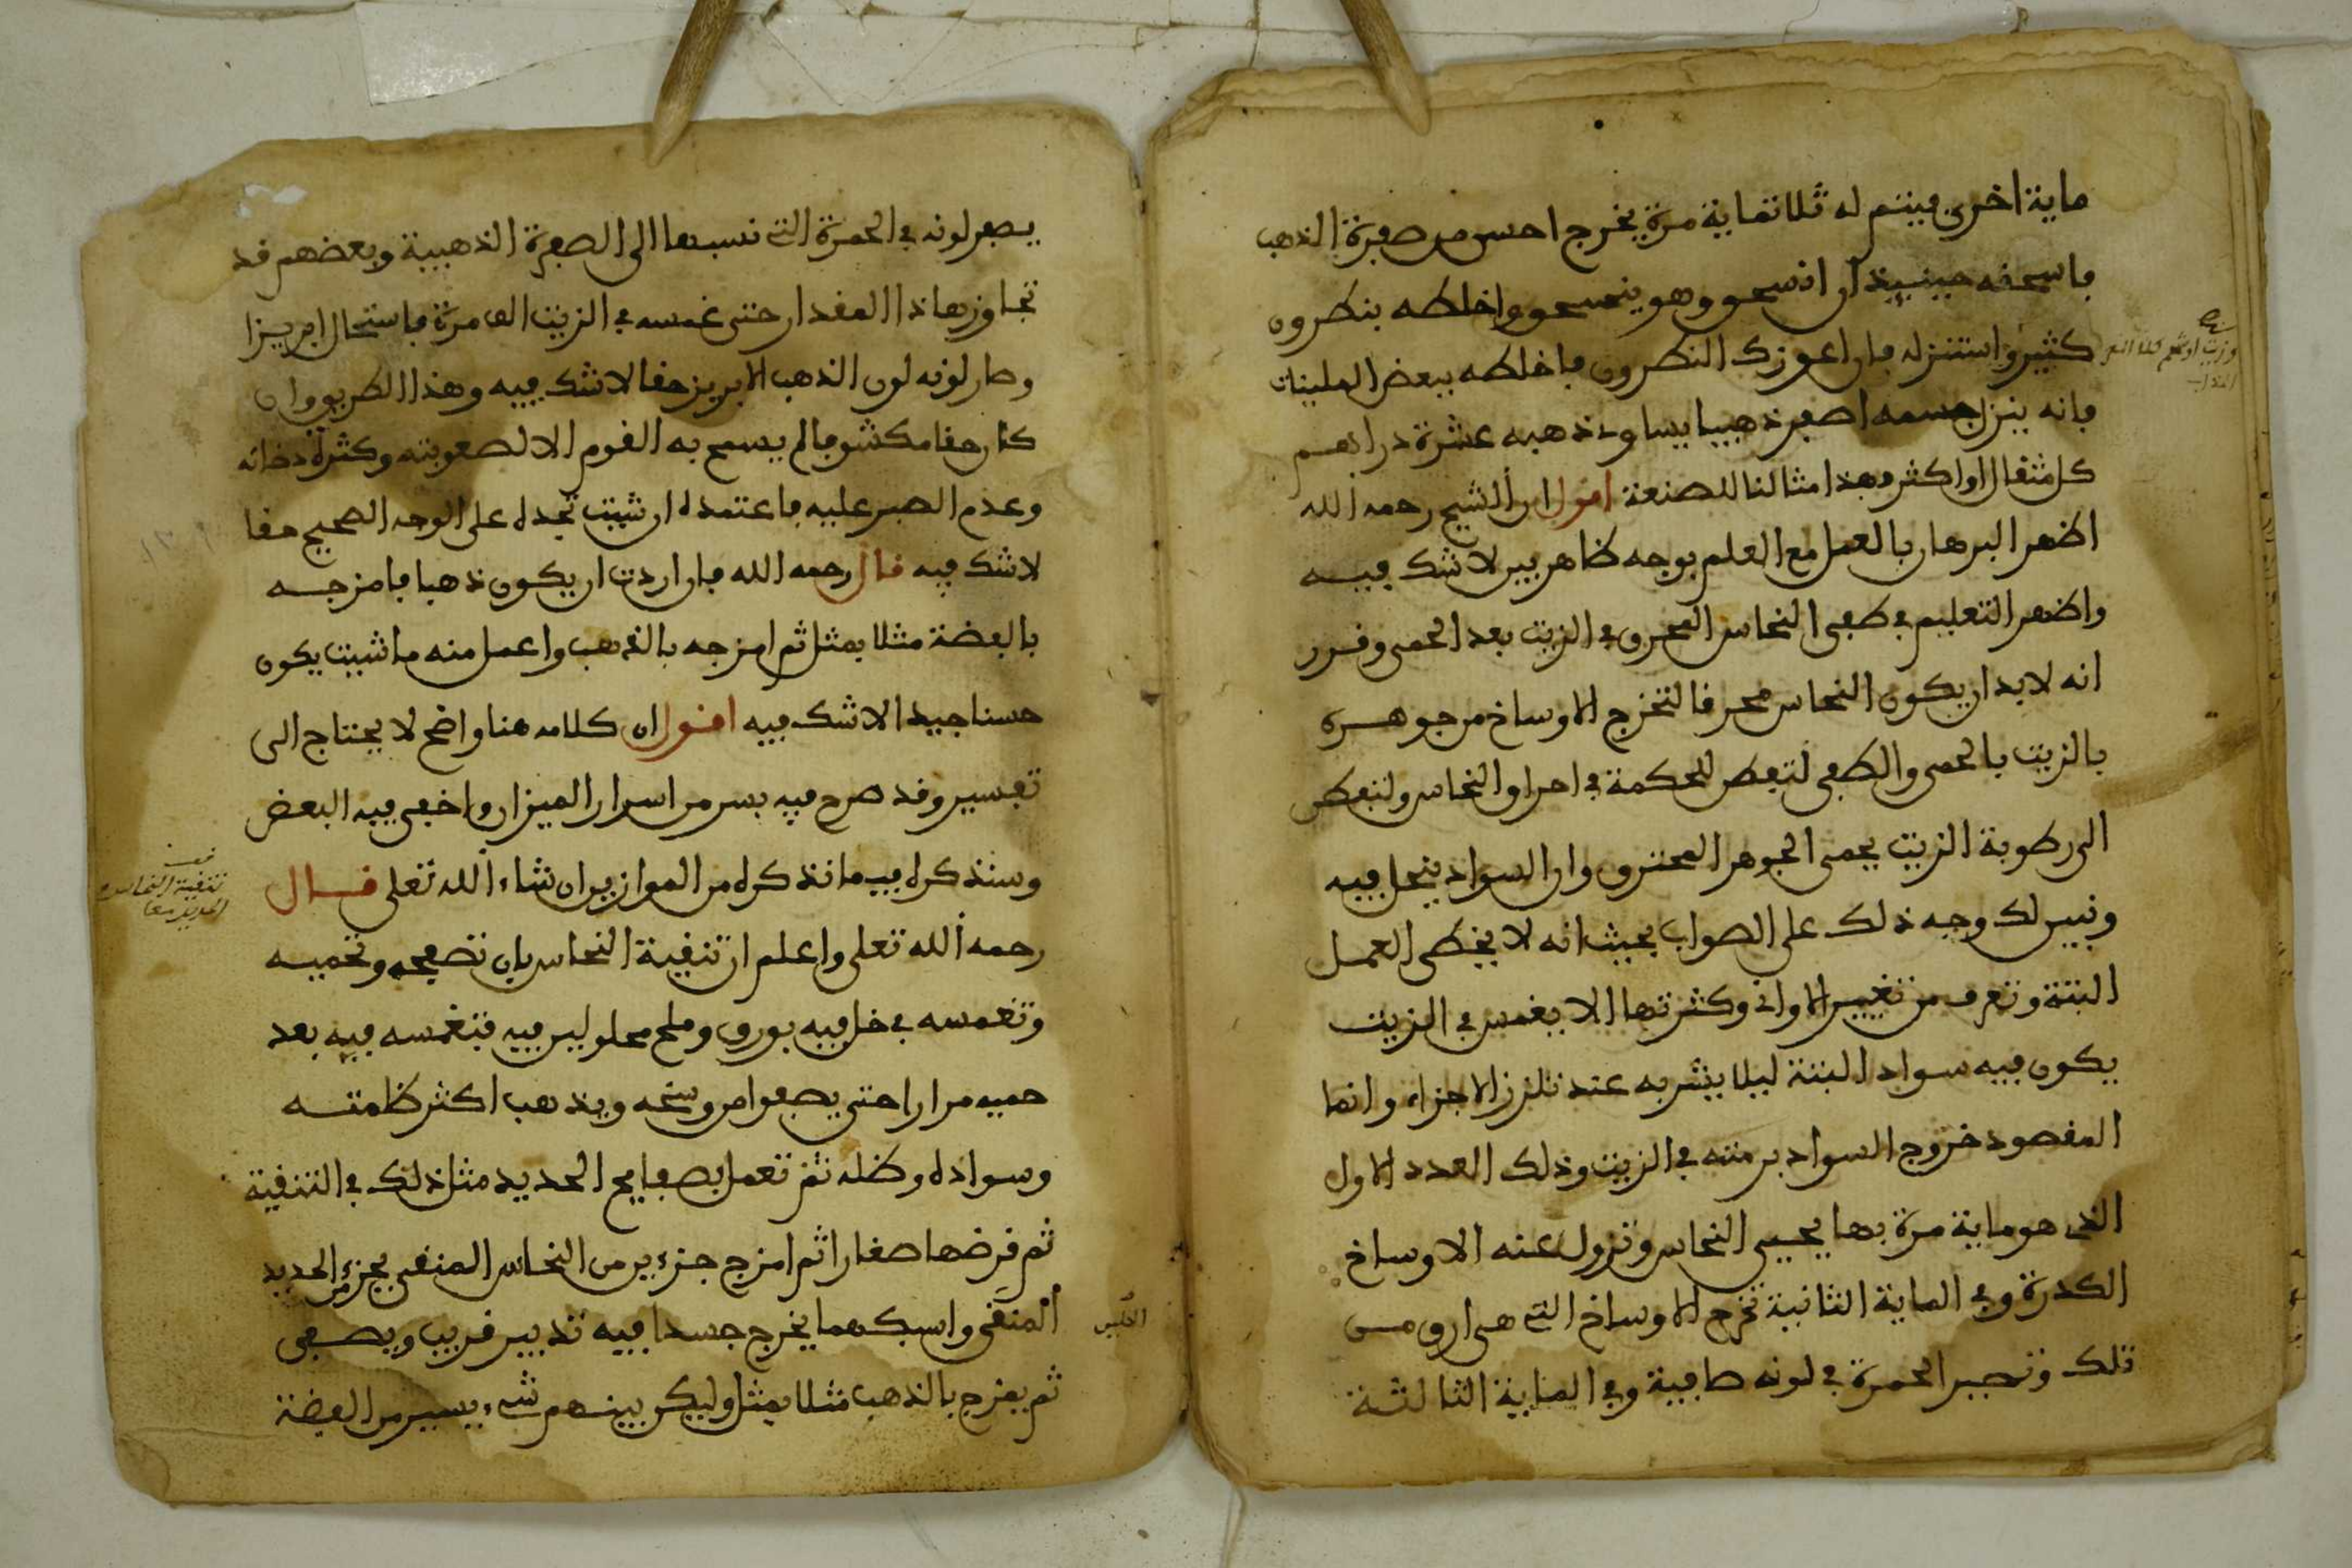 ماية اخرى فيتم له ثلاثماية مرة يخرج احسن من صفرة الذهب
فاسحقه حينيذ ان انسحق وهو ينسحق واخلطه بنطرون
كثير واستنزله فان اعوزك النطرون فاخلطه ببعض الملينات
فانه ينزل جسمه اصفر ذهبيا يساوى ذهبه عشرة دراهم
كل مثقال او اكثر وهذا مثالنا للصنعة اقول ان الشيخ رحمه الله
اظهر البرهان بالعمل مع العلم بوجه ظاهر بين لا شك فيه
واظهر التعليم في طفى النحاس المحرق في الزيت بعد الحمى وقرر
انه لا بد ان يكون النحاس محرقا لتخرج الاوساخ من جوهره
بالزيت بالحمى والطفى لتفطن للحكمة في احراق النحاس ولتفطن
الى رطوبة الزيت يحمى الجوهر المحترق وان السواد ينحل فيه
ونبين لك وجه ذلك على الصواب بحيث انه لا يخطى العمل
البتة وتعرف من تغيير الاوانى وكثرتها الا يغمس في الزيت
يكون فيه سواد البتة ليلا يشربه عند تلزز الاجزاء وانما
المقصود خروج السواد برمته في الزيت وذلك العدد الاول
الذى هو ماية مرة بها يحيى النحاس وتزول عنه الاوساخ
الكدرة وفي الماية الثانية تخرج الاوساخ التي هى ارق من
تلك وتصير الحمرة في لونه صافية وفي الماية الثالثة
يصفر لونه في الحمرة التي نسبها الى الصفرة الذهبية وبعضهم قد
تجاوز هاذا المقدار حتى غمسه في الزيت الف مرة فاستحال ابريزا
وصار لونه لون الذهب الابريز حقا لا شك فيه وهذا الطريق وان
كان حقا مكشوفا لم يسمح به القوم الا لصعوبته وكثرة دخانه
وعدم الصبر عليه فاعتمده ان شيت تجده على الوجه الصحيح حقا
لا شك فيه قال رحمه الله فان اردت ان يكون ذهبا فامزجه
بالفضة مثلا بمثل ثم امزجه بالذهب واعمل منه ما شيت يكون
حسنا جيدا لا شك فيه اقول ان كلامه هنا واضح لا يحتاج الى
تفسير وقد صرح فيه بسر من اسرار الميزان واخفى فيه البعض
وسنذكره فيما نذكره من الموازين ان شاء الله تعلى قال
رحمه الله تعلى واعلم ان تنقية النحاس بان تصفحه وتحميه
وتغمسه في خل فيه بورق وملح محلولين فيه فتغمسه فيه بعد
حميه مرارا حتى يصفوا من وسخه ويذهب اكثر ظلمته
وسواده وظله ثم تعمل بصفايح الحديد مثل ذلك في التنقية
ثم قرضها صغارا ثم امزج جزءين من النحاس المنقى بجزء من الحديد
المنقى واسبكهما يخرج جسدا فيه تدبير قريب ويصفى
ثم يمزج بالذهب مثلا بمثل وليكن بينهم شيء يسير من الفضة
تنقية النحاس